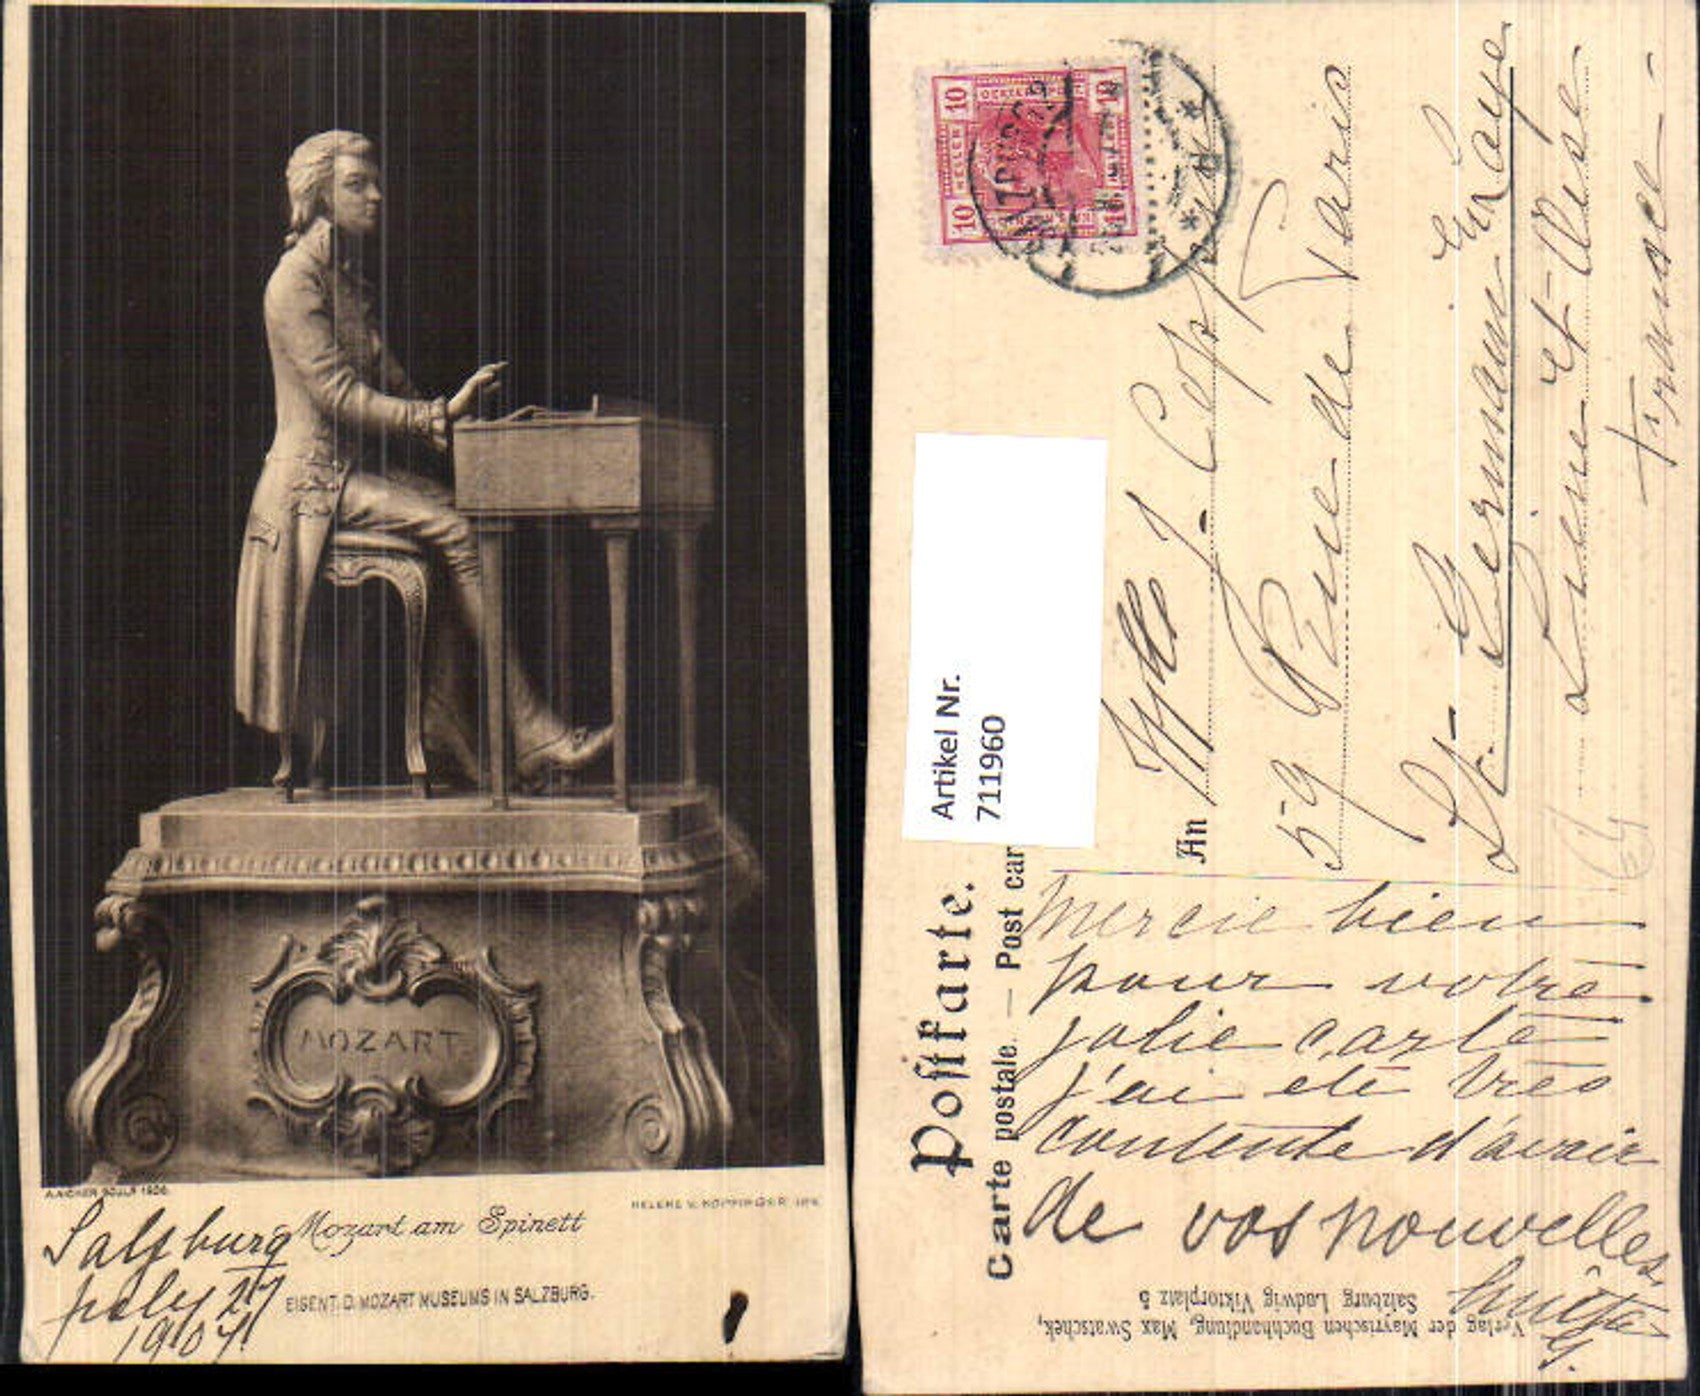 MOZART
A. AICHER SCULP. 1906.
HELENE V. KOPPINGER
Mozart am Spinett
EIGENT. D. MOZART MUSEUMS IN SALZBURG.
Salzburg
july 27
1907
10 10
HELLER
SALZBURG
Artikel Nr.
711960
Postkarte.
Carte postale. — Post car
An Mlle J. Copp
59 Rue de Paris
St- Germain En Laye
Seine Et-Oise
France
Mercie bien
pour votre
jolie carte
j'ai eté très
contente d'avoir
de vos nouvelles
G.
Verlag der Mayrischen Buchhandlung, Max Swatschek,
Salzburg Ludwig Viktorplatz 5